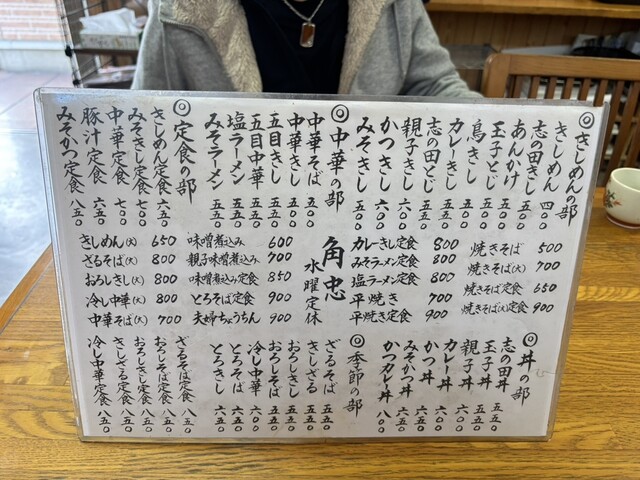 ◎きしめんの部
きしめん 四〇〇
志の田きし 五〇〇
あんかけ 五〇〇
玉子とじ 五〇〇
鳥きし 五〇〇
カレーきし 五五〇
志の田とじ 五五〇
親子きし 六〇〇
かつきし 六〇〇
みそきし 五五〇
◎中華の部
中華そば 五〇〇
中華きし 五〇〇
五目きし 五五〇
五目中華 五五〇
塩ラーメン 五五〇
みそラーメン 五五〇
◎定食の部
きしめん定食 六五〇
みそきし定食 七〇〇
中華定食 七〇〇
豚汁定食 六五〇
みそかつ定食 八五〇
焼きそば 500
焼きそば(大) 700
焼きそば定食 650
焼きそば(大)定食 900
カレーきし定食 800
みそラーメン定食 800
塩ラーメン定食 800
平焼き 700
平焼き定食 900
角忠
水曜定休
味噌煮込み 600
親子味噌煮込み 700
味噌煮込み定食 850
とろそば定食 900
夫婦ちょうちん 900
きしめん(大) 650
ざるそば(大) 800
おろしきし(大) 800
冷し中華(大) 800
中華そば(大) 700
◎丼の部
志の田丼 五五〇
玉子丼 五五〇
親子丼 六〇〇
カレー丼 六〇〇
かつ丼 六〇〇
みそかつ丼 六五〇
カツカレー丼 八〇〇
◎季節の部
ざるそば 五五〇
きしざる 五五〇
おろしきし 五五〇
おろしそば 五五〇
冷し中華 六〇〇
とろそば 六五〇
とろきし 六五〇
ざるそば定食 八五〇
おろしそば定食 八五〇
おろしきし定食 八五〇
きしざる定食 八五〇
冷し中華定食 八五〇